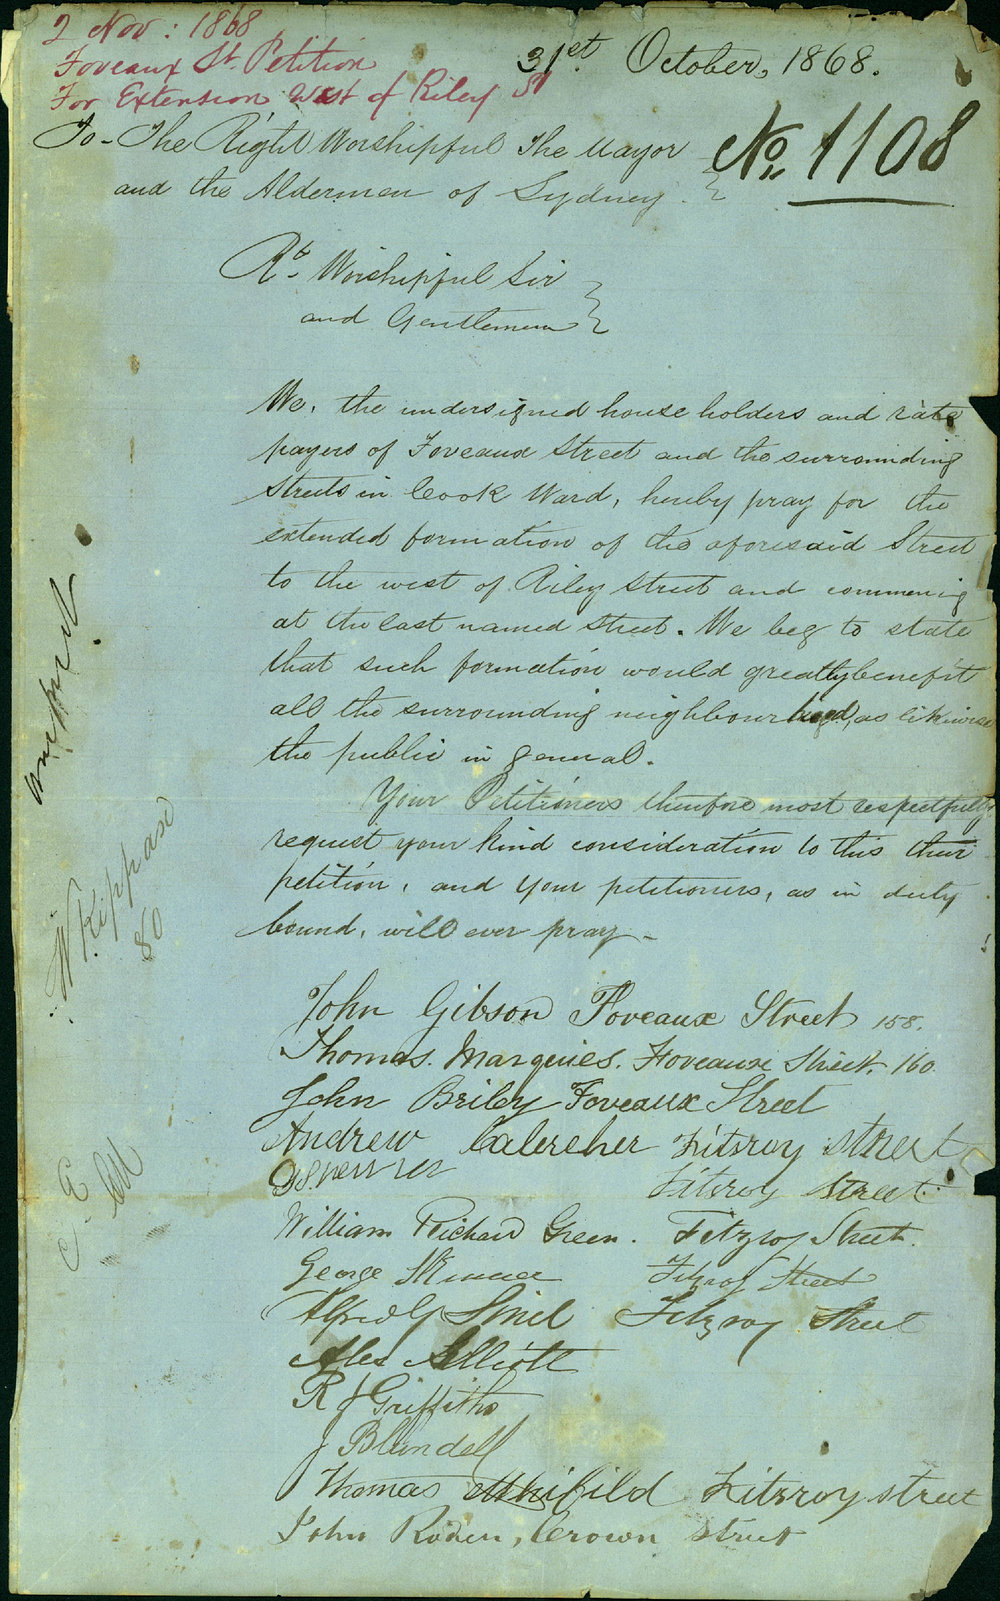 2 Nov: 1868
Foveaux St. Petition
For Extension West of Riley St
31st October, 1868.
No. 1108
To - The Right Worshipful The Mayor
and the Aldermen of Sydney.
Rt. Worshipful Sir
and Gentlemen
We, the undersigned house holders and rate
payers of Foveaux Street and the surrounding
Streets in Cook Ward, hereby pray for the
extended formation of the aforesaid Street
to the west of Riley Street and commencing
at the last named street. We beg to state
that such formation would greatly benefit
all the surrounding neighbourhood, as likewise
the public in general.
Your Petitioners therefore most respectfully
request your kind consideration to this their
petition, and your petitioners, as in duty
bound, will ever pray -
John Gibson Foveaux Street 158.
Thomas. Marquies. Foveaux Street. 160.
John Briley Foveaux Street
Andrew Fitzroy Street
Fitzroy Street.
William Richard Green. Fitzroy Street.
George Skinner Fitzroy Street
Alfred G Fitzroy Street
Alex Elliott
R J Griffiths
J Blundell
Thomas Fitzroy street
John Roden, Crown Street
W Rippase
80